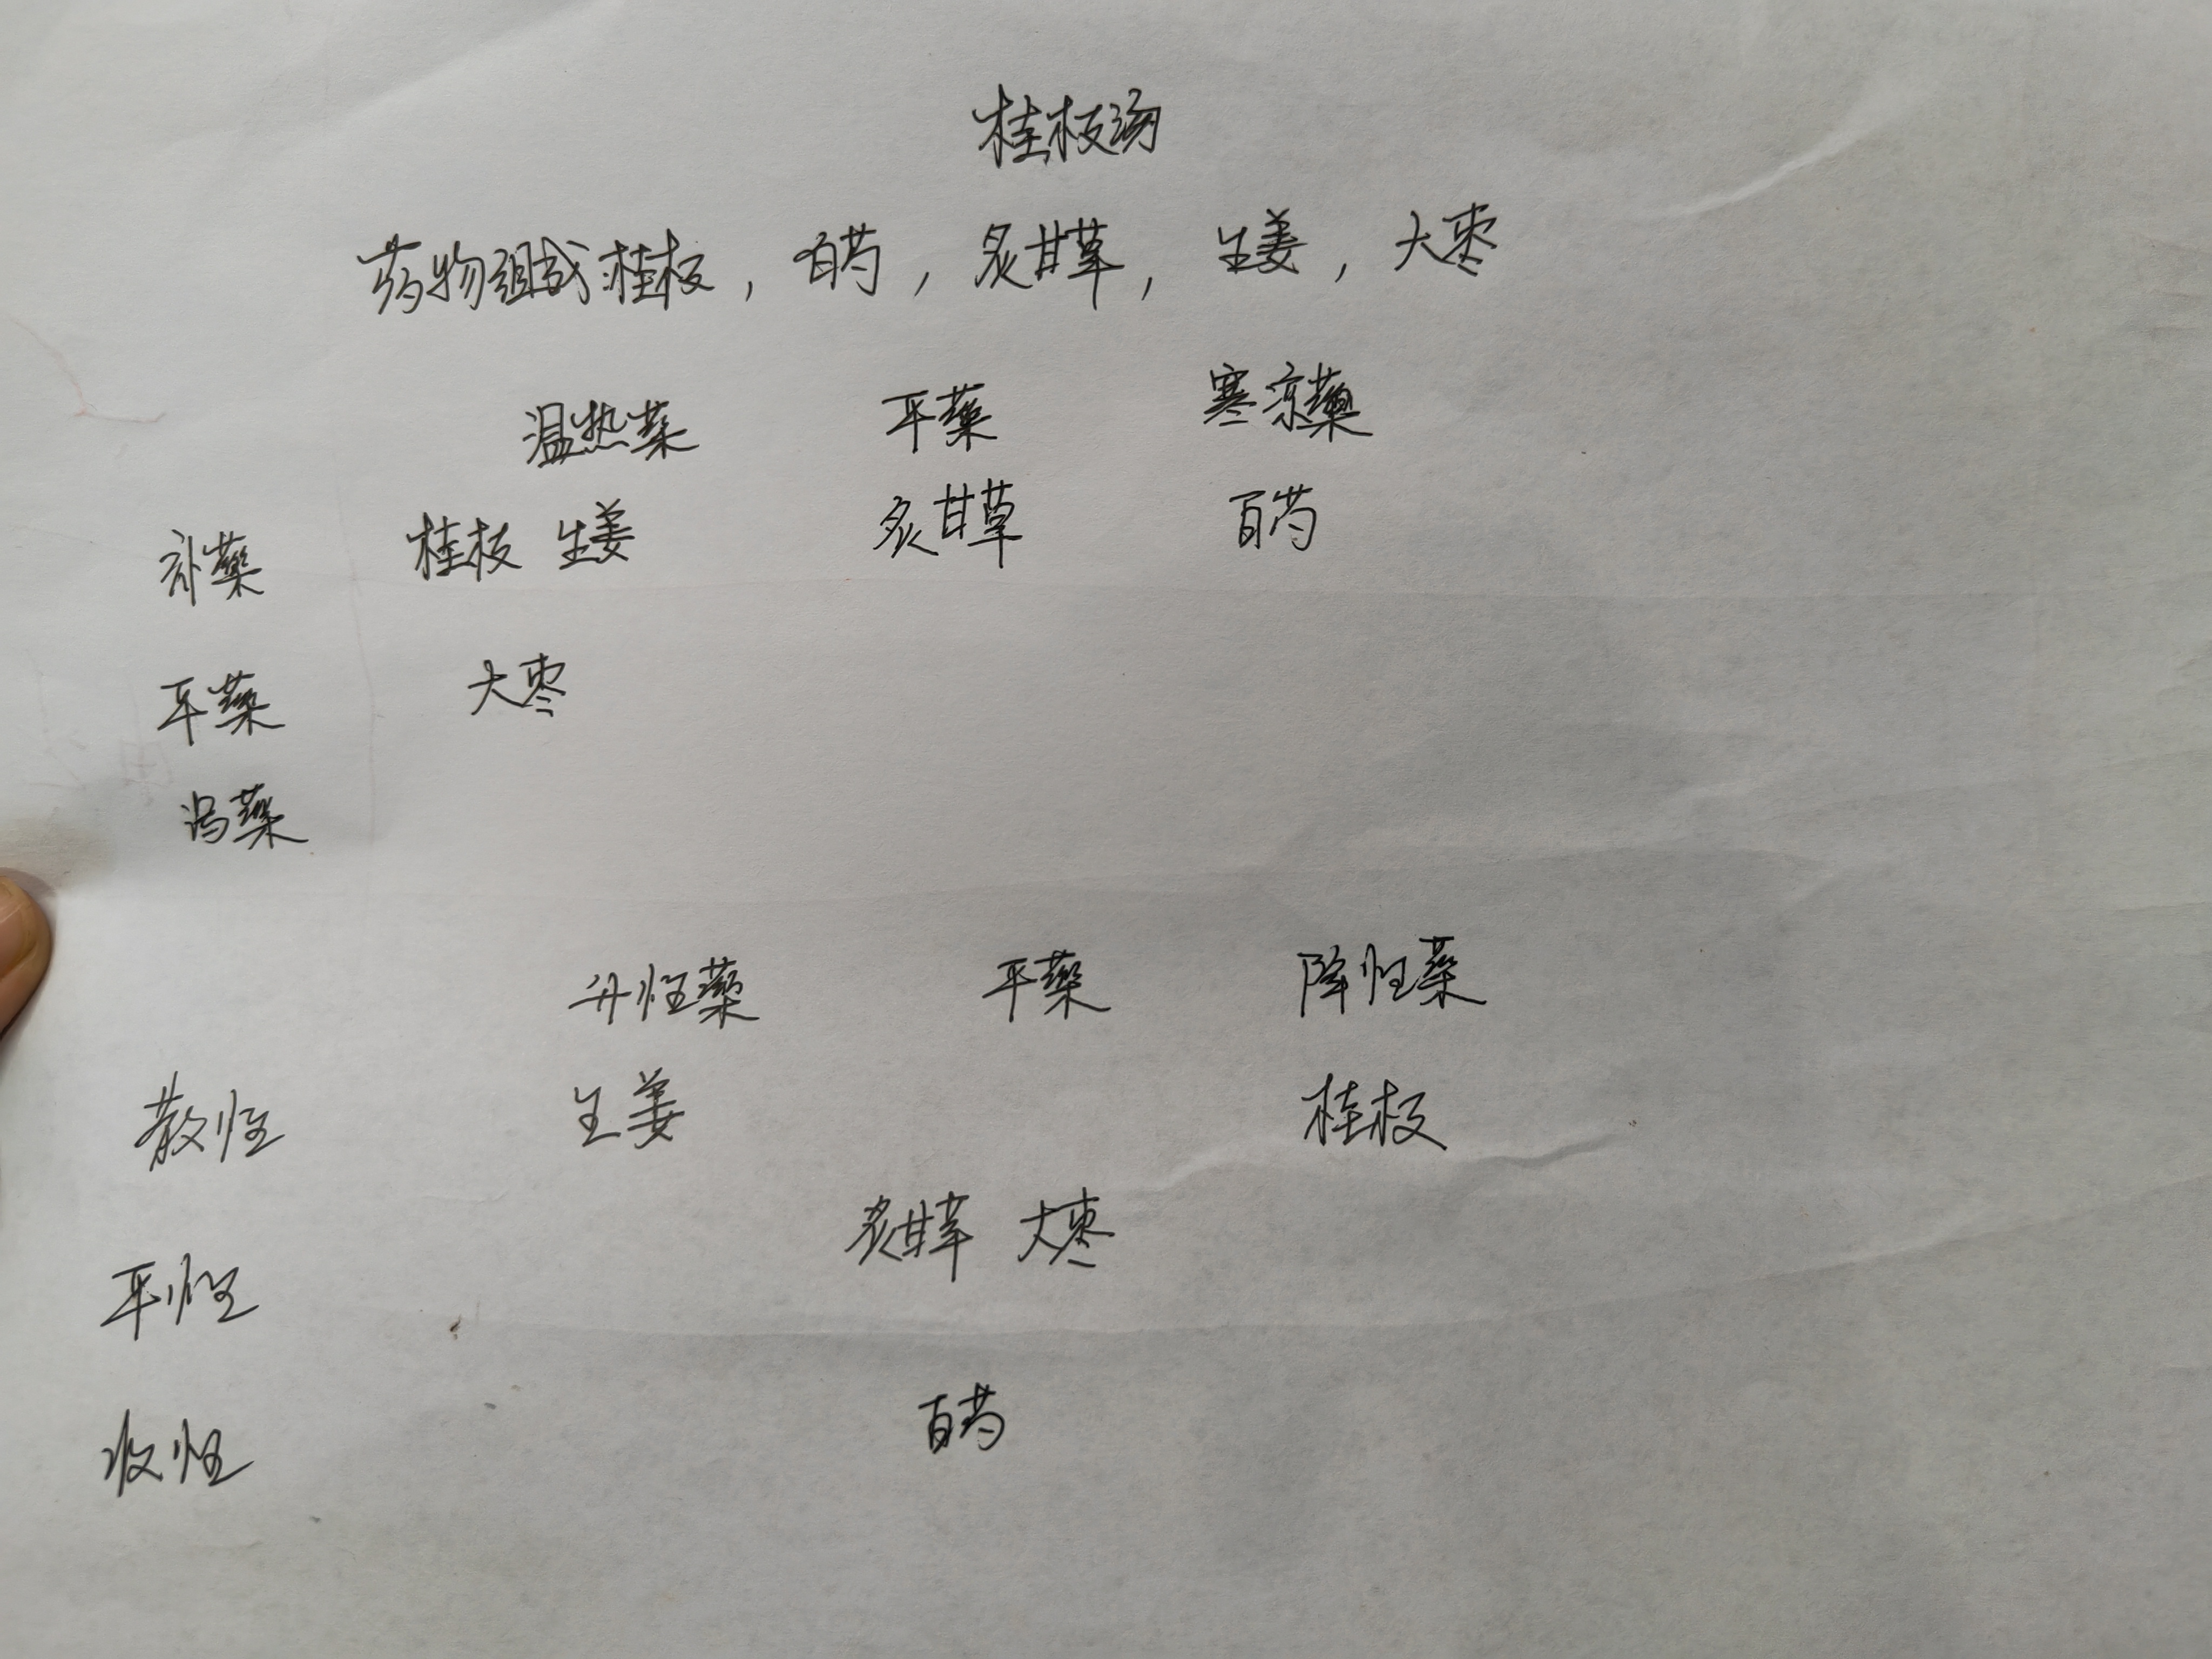 桂枝汤
药物组成:桂枝，白芍，炙甘草，生姜，大枣
温热药 平藥 寒凉藥
补藥 桂枝 生姜 炙甘草 百芍
平藥 大枣
泻藥
升性藥 平藥 降性藥
散性 生姜 桂枝
平性 炙甘草 大枣
收性 百芍